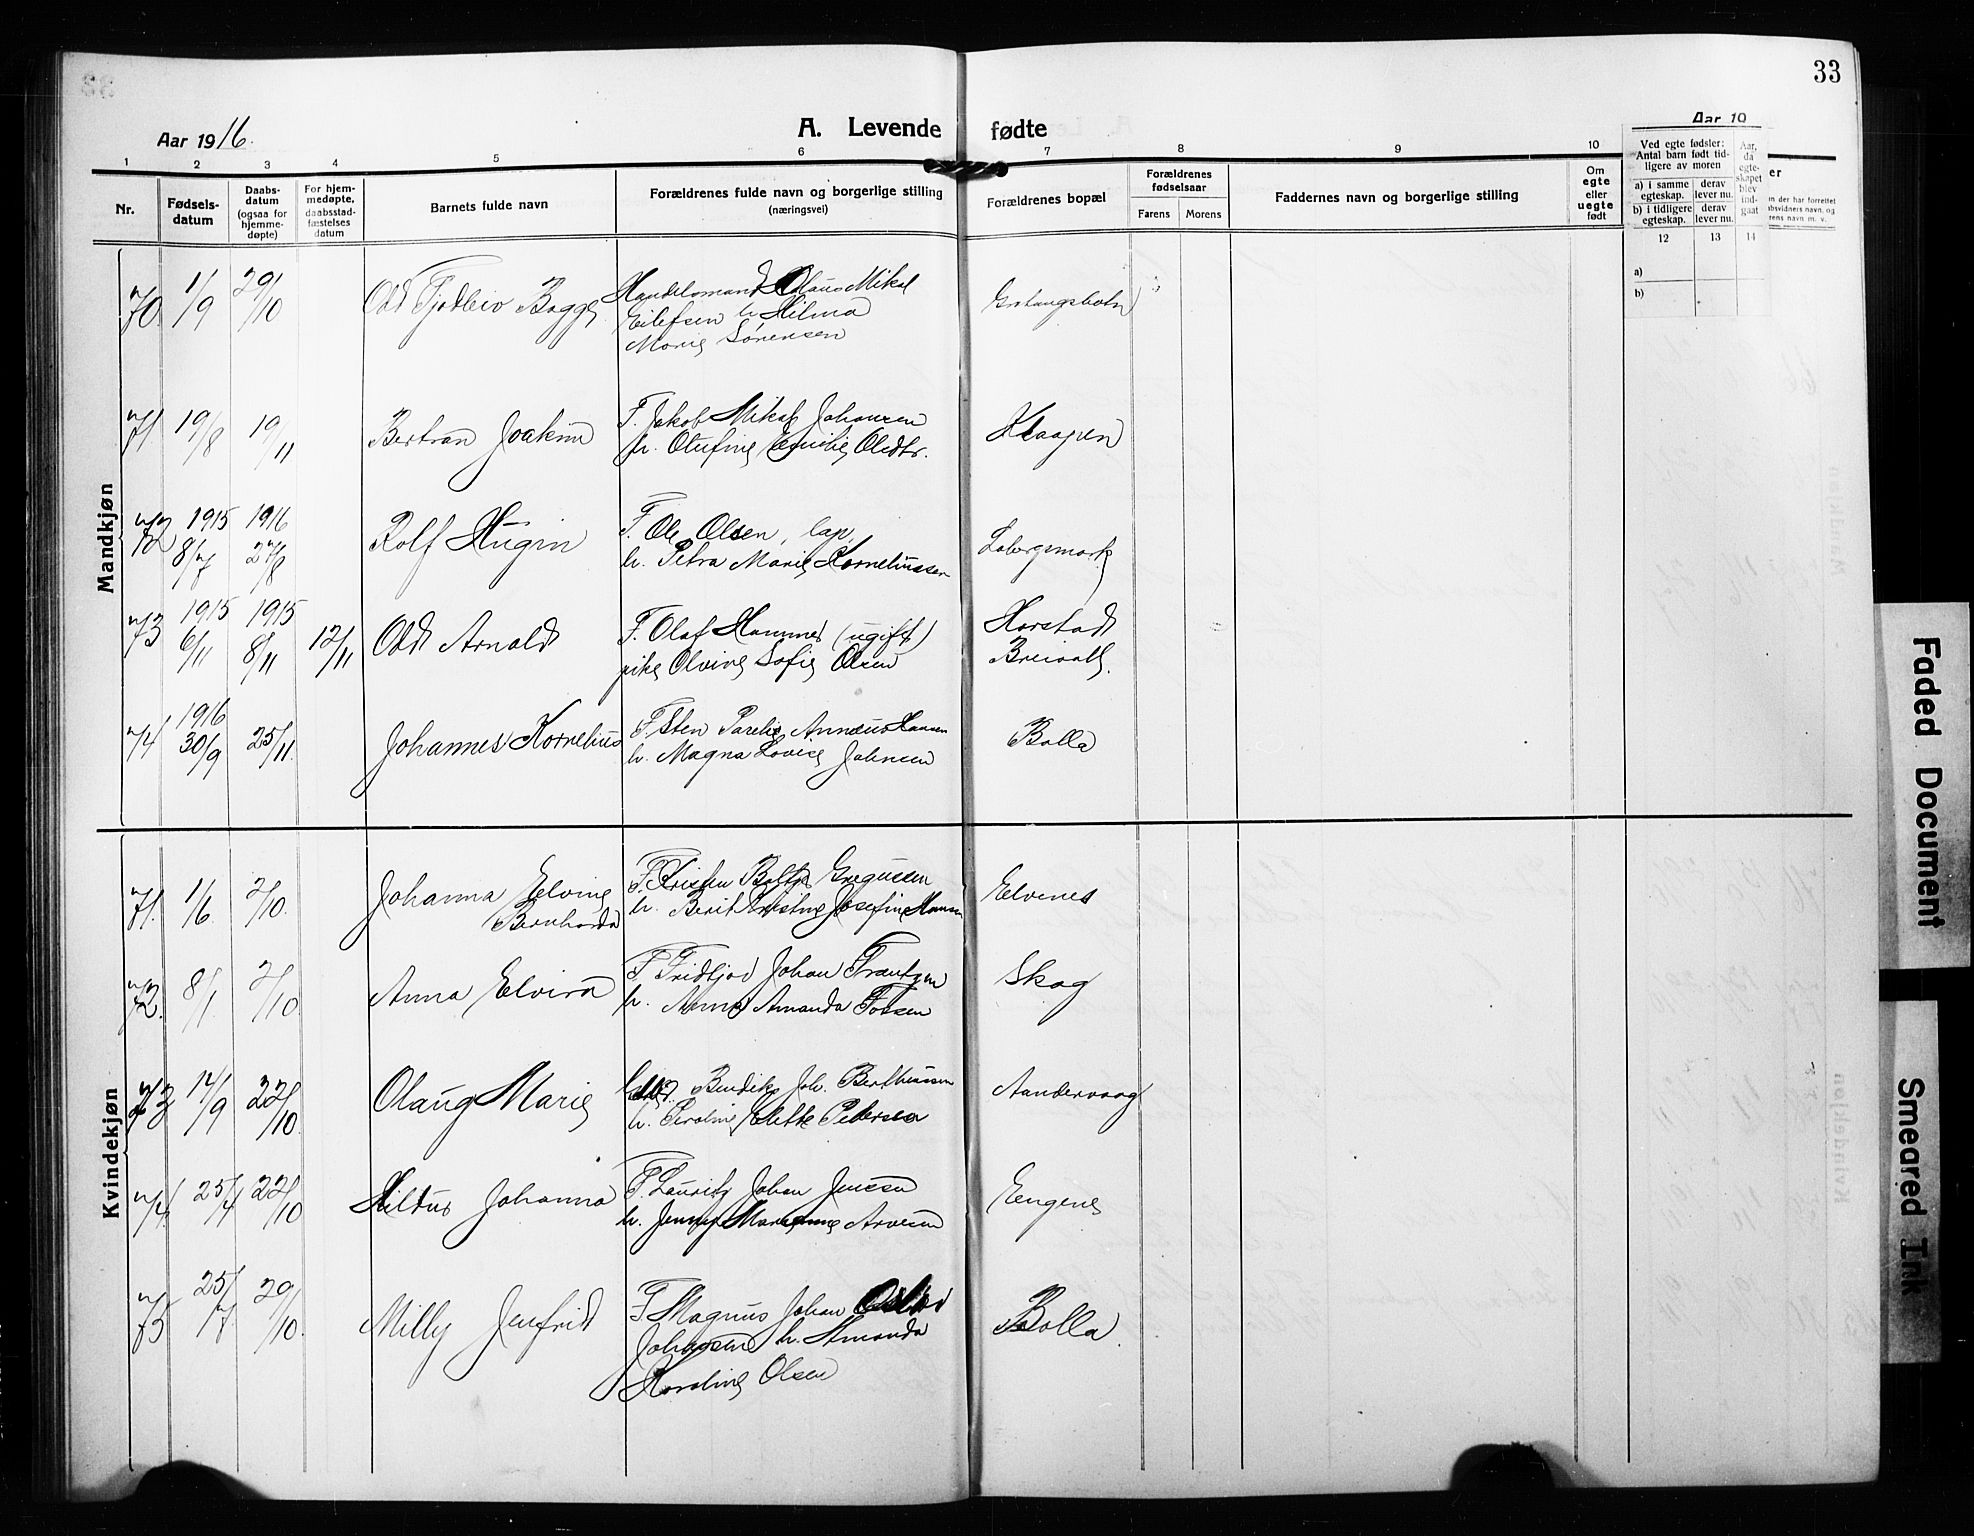 33
Aar 1916.
A. Levende fødte
Aar 19
1 2 3 4 5 6 7 8 9 10
Nr.
Fødsels-
datum
Daabs-
datum
(ogsaa for
hjemme-
døpte)
For hjem-
medøpte,
daabsstad-
fæstelses
datum
Barnets fulde navn
Forældrenes fulde navn og borgerlige stilling
(næringsvei)
Forældrenes bopæl
Forældrenes
fødselsaar
Farens Morens
Faddernes navn og borgerlige stilling
Om
egte
eller
uegte
født
Ved egte fødsler:
Antal barn født tid-
ligere av moren
a) i samme
egteskap.
derav
lever nu.
b) i tidligere
egteskap.
derav
lever nu.
Aar,
da
egte-
skapet
blev
ind-
gaat
12 13 14
a)
b)
Mandkjøn
70 1/9 29/10 Odd Bagge Handelsmand Olaus Mikal
Eilefsen h. Hilma
Marie Sørensen
Gratangsbotn
71 19/8 19/11 Bertran Joakim F. Jakob Mikal Johansen
h. Olufine Emilie Oldtr.
Klaapen
72 1915 8/7 1916 27/8 Rolf Hugin F. Ole Olsen, lap,
h. Petra Marie Korneliussen
Labergsmark
73 1915 6/11 1915 8/11 12/11 Odd Arnald F. Olaf Hammer (ugift)
pike Olvine Sofie Olsen
Harstad
Breivoll.
74 1916 30/9 25/11 Johannes Kornelius F. Sten Parelie Annæus Hansen
h. Magna Lovise Johnsen
Bolla
Kvindekjøn
71. 1/6. 2/10. Johanna Elvine
Bernharda
F. Kristen Gregussen
h. Berit Kristine Josefine Hansen
Elvenes
72. 8/1. 2/10. Anna Elvira F. Fridtjov Johan Frantzen
h. Anna Amanda
Skog
73 12/9 22/10. Olaug Marie Bendik Joh. Berthinssen
h. Petersen
Aandervaag
74. 25/4 22/10 Johanna F. Lauritz Johan Jenssen
h. Jenny Arvesen
Engenes
75 25/7 29/10. Milly Jenfrid F. Magnus Johan
Johansen h. Amanda
Karoline Olsen
Bolla.
Faded Document
Smeared Ink